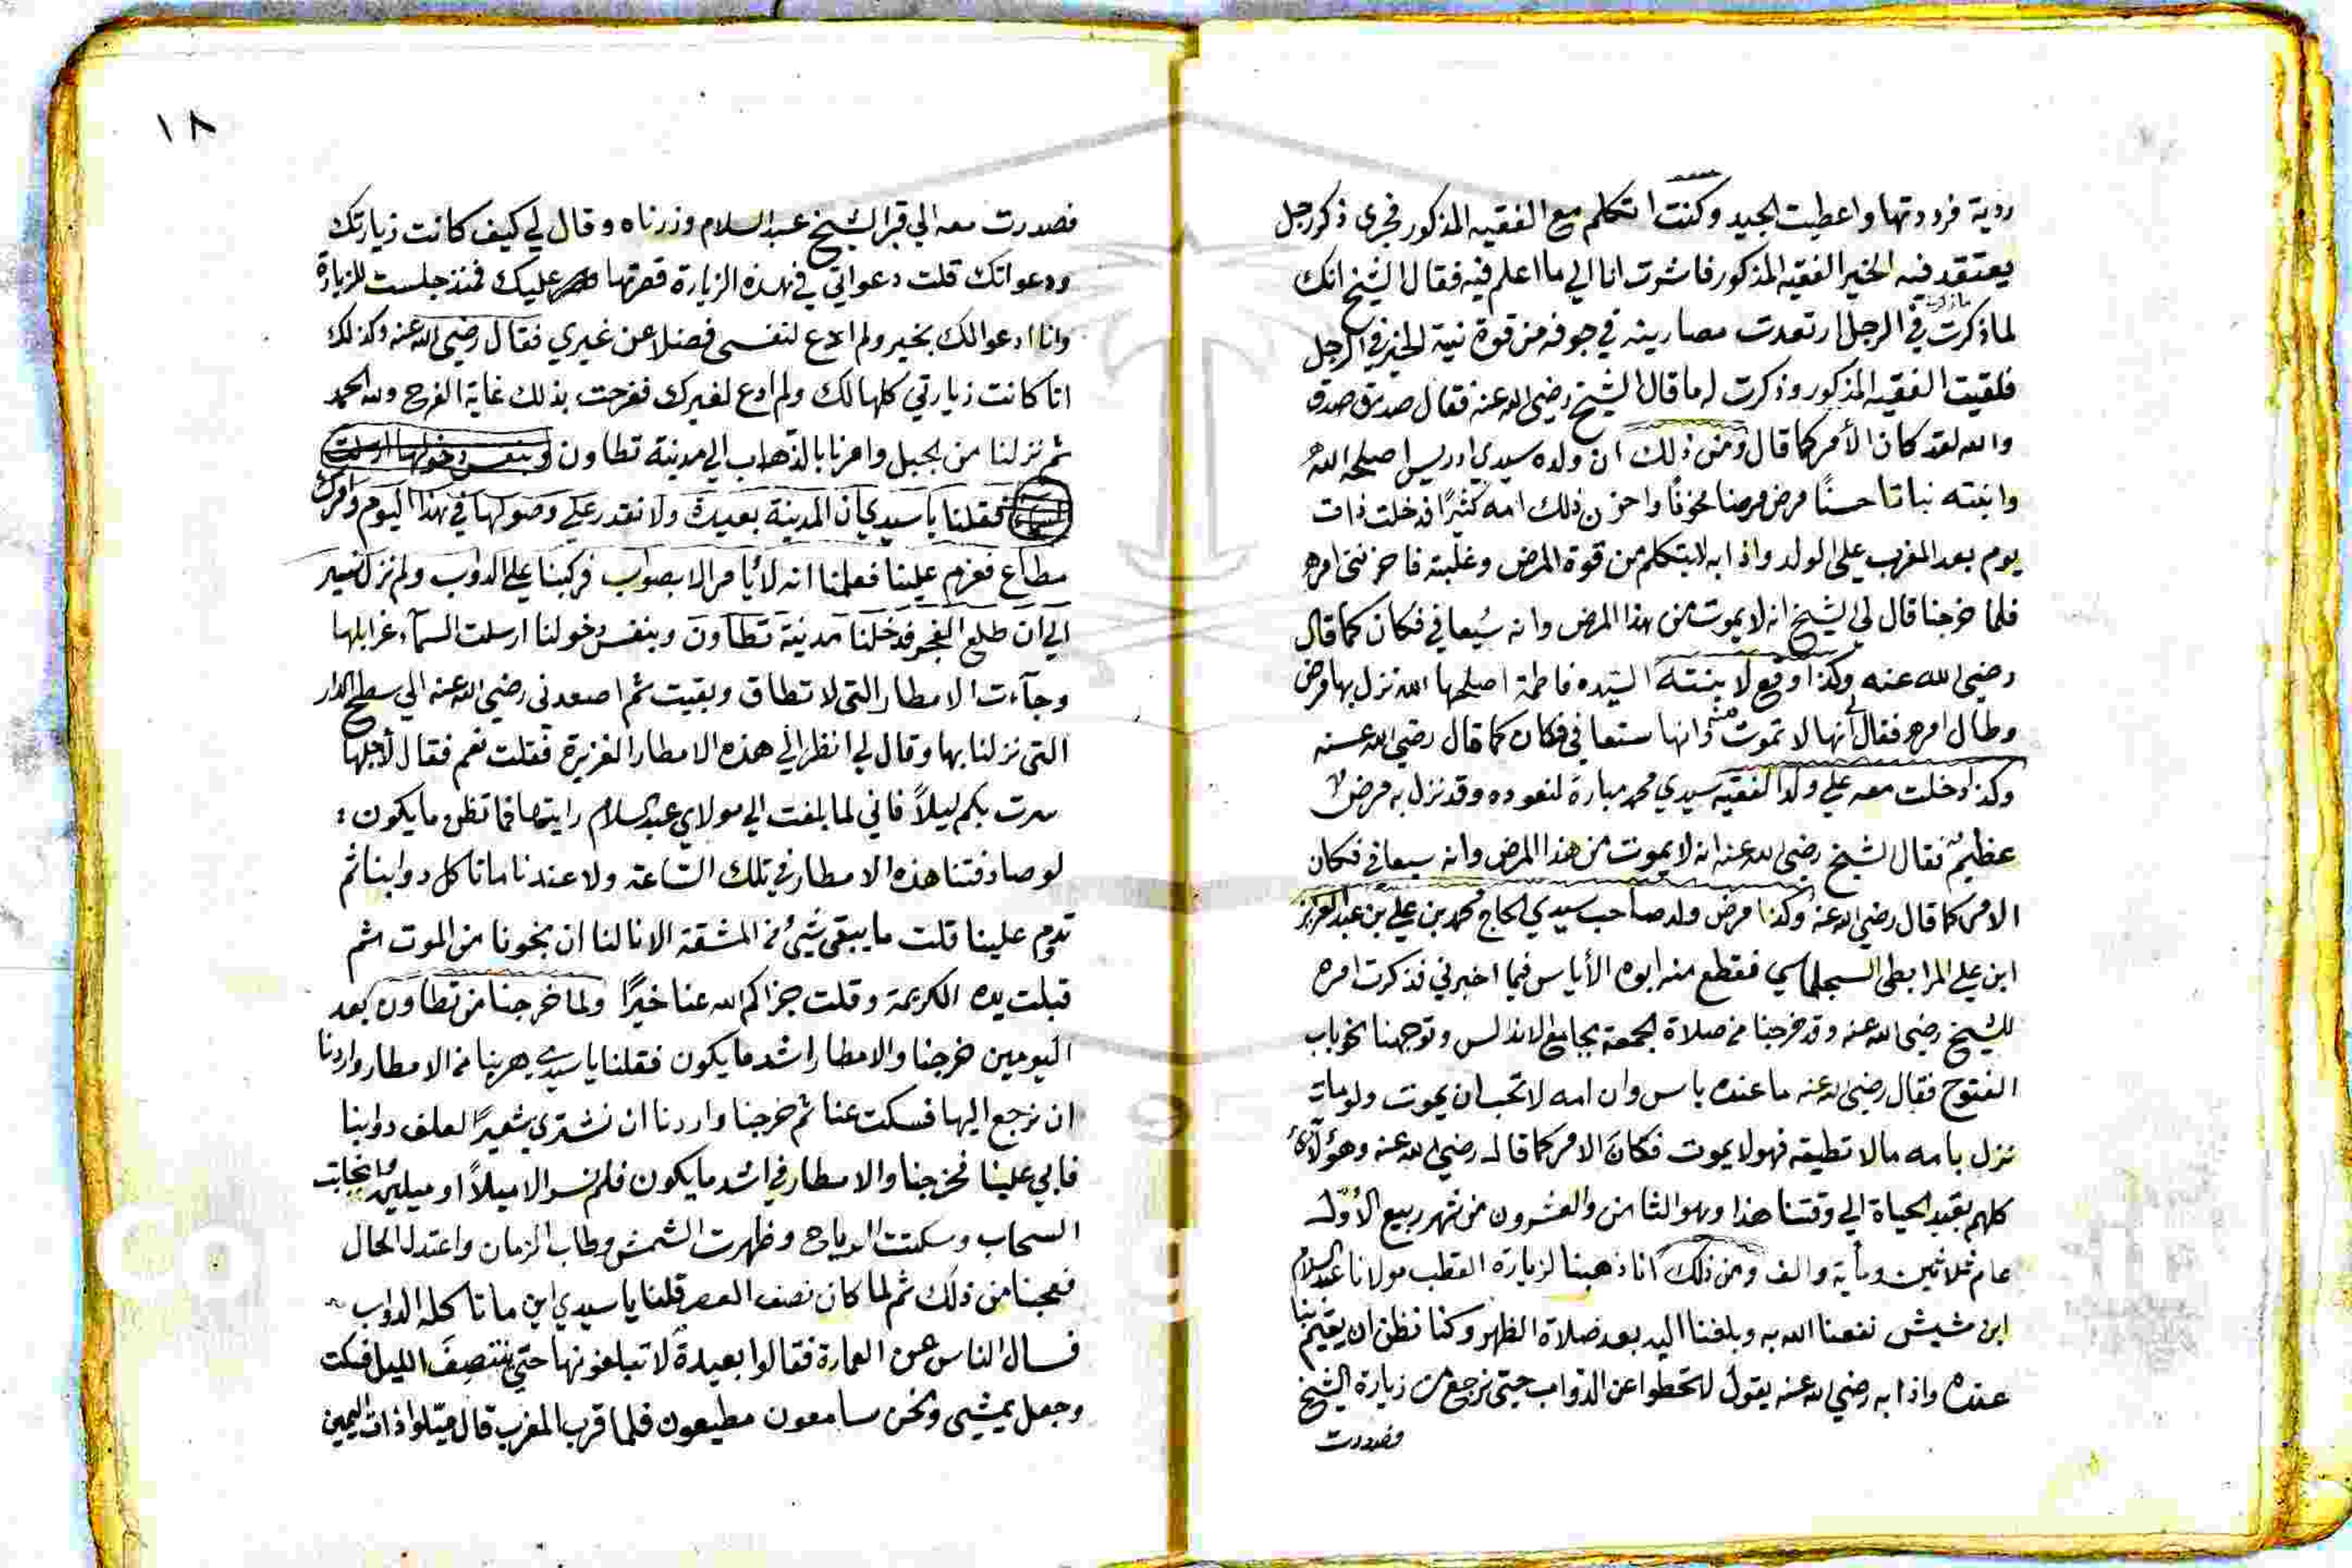 ردية فرددتها واعطيت الجيد وكنت اتكلم مع الفقيه المذكور فجرى ذكر رجل
يعتقد فيه الخير الفقيه المذكور فاشرت انا الي ما اعلم فيه فقال الشيخ انك
لما ذكرت ما ذكرت في الرجل ارتعدت مصارينه في جوفه من قوة نية الخير في الرجل
فلقيت الفقيه المذكور وذكرت له ما قال الشيخ رضي الله عنه فقال صدق صدق
والله لقد كان الأمر كما قال ومن ذلك ان ولده سيدي ادريس اصلحه الله
وانبته نباتا حسنًا مرض مرضا مخوفًا واحزن ذلك امه كثيرًا فدخلت ذات
يوم بعد المغرب على الولد واذا به لا يتكلم من قوة المرض وغلبته فاحزنني امره
فلما خرجنا قال لي الشيخ انه لا يموت من هذا المرض وانه سيعافي فكان كما قال
رضي الله عنه وكذا وقع لابنته السيده فاطمة اصلحها الله نزل بها مرض
وطال امره فقال لي انها لا تموت منه وانها ستعافي فكان كما قال رضي الله عنه
وكذا دخلت معه علي ولد الفقيه سيدي محمد مبارة لنعوده وقد نزل به مرض
عظيم فقال الشيخ رضي الله عنه انه لا يموت من هذا المرض وانه سيعافي فكان
الامر كما قال رضي الله عنه وكذا مرض ولد صاحب سيدي الحاج محمد بن علي بن عبد العزيز
ابن علي المرابطي السجلماسي فقطع منه ابوه الأياس فيما اخبرني فذكرت امره
للشيخ رضي الله عنه وقد خرجنا من صلاة الجمعة بجامع الاندلس وتوجهنا نحو باب
الفتوح فقال رضي الله عنه ما عنده باس وان امه لا تحب ان يموت ولو مات
نزل بامه ما لا تطيقه فهو لا يموت فكان الامر كما قال رضي الله عنه وهؤلآء
كلهم بقيد الحياة الي وقتنا هذا وهو الثامن والعشرون من شهر ربيع الأوّل
عام ثلاثين ومأية والف ومن ذلك انا ذهبنا لزيارة القطب مولانا عبد السلام
ابن مشيش نفعنا الله به وبلغنا اليه بعد صلاة الظهر وكنا نظن ان يقيم بنا
عنده واذا به رضي الله عنه يقول لا تحطوا عن الدواب حتى نرجع من زيارة الشيخ
فصدرت
١٨
فصدرت معه الي قبر الشيخ عبد السلام وزرناه وقال لي كيف كانت زيارتك
ودعواتك قلت دعواتي في هذه الزيارة قصرتها عليك فمنذ جلست للزيارة
وانا ادعوا لك بخير ولم ادع لنفسي فضلا عن غيري فقال رضي الله عنه وكذلك
انا كانت زيارتي كلها لك ولم ادع لغيرك ففرحت بذلك غاية الفرح ولله الحمد
ثم نزلنا من الجبل وامرنا بالذهاب الي مدينة تطاون وبنفس دخولها ارسلت
السماء فقلنا يا سيدي ان المدينة بعيدة ولا نقدر علي وصولها في هذا اليوم وامرك
مطاع فعزم علينا فعلمنا انه لا يأمر الا بصواب فركبنا علي الدواب ولم نزل نسير
الي ان طلع الفجر فدخلنا مدينة تطاون وبنفس دخولنا ارسلت السمآء غرابلها
وجآءت الامطار التي لا تطاق وبقيت ثم اصعدني رضي الله عنه الي سطح الدار
التي نزلنا بها وقال لي انظر الي هذه الامطار الغزيرة فقلت نعم فقال لأجلها
سرت بكم ليلاً فاني لما بلغت الي مولاي عبد السلام رايتها فما تظن ما يكون
لو صادفتنا هذه الامطار في تلك الساعة ولا عندنا ما تاكل دوابنا ثم
تدوم علينا قلت ما يبقى شيء من المشقة الا نالنا ان نجونا من الموت ثم
قبلت يده الكريمة وقلت جزاكم الله عنا خيرًا ولما خرجنا من تطاون بعد
اليومين خرجنا والامطار اشد ما يكون فقلنا يا سيدي هربنا من الامطار واردنا
ان نرجع اليها فسكت عنا ثم خرجنا واردنا ان نشتري شعيرًا لعلف دوابنا
فابي علينا فخرجنا والامطار في اشد ما يكون فلم نسر الا ميلاً او ميلين فانجابت
السحاب وسكنت الرياح وظهرت الشمش وطاب الزمان واعتدل الحال
فعجبنا من ذلك ثم لما كان نصف العصر قلنا يا سيدي اين ما تاكله الدواب
فسال الناس عن العمارة فقالوا بعيدة لا تبلغونها حتي ينتصف الليل فسكت
وجعل يمشي ونحن سامعون مطيعون فلما قرب المغرب قال ميلوا ذات اليمين